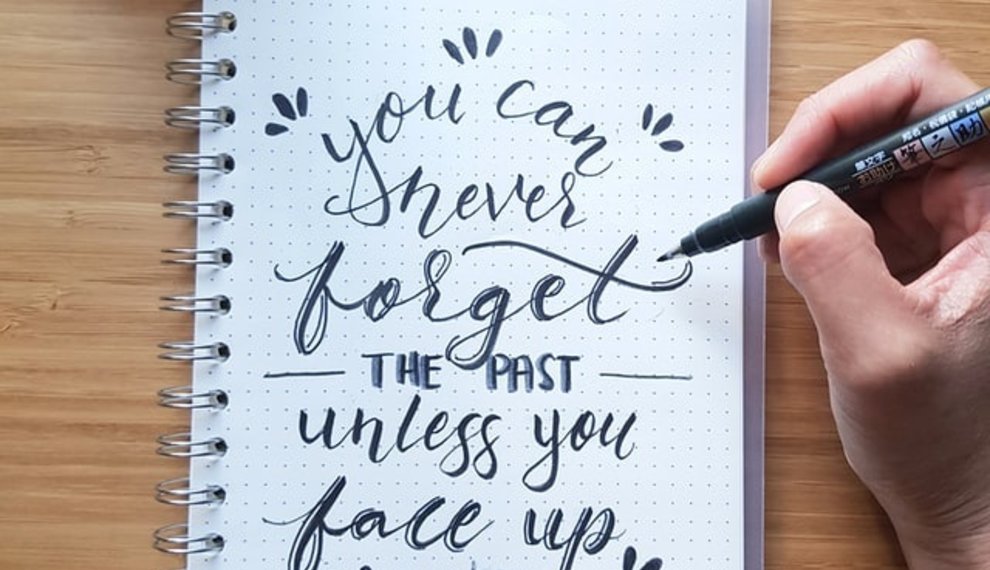 you can
never
forget
THE PAST
unless you
face up
筆之助